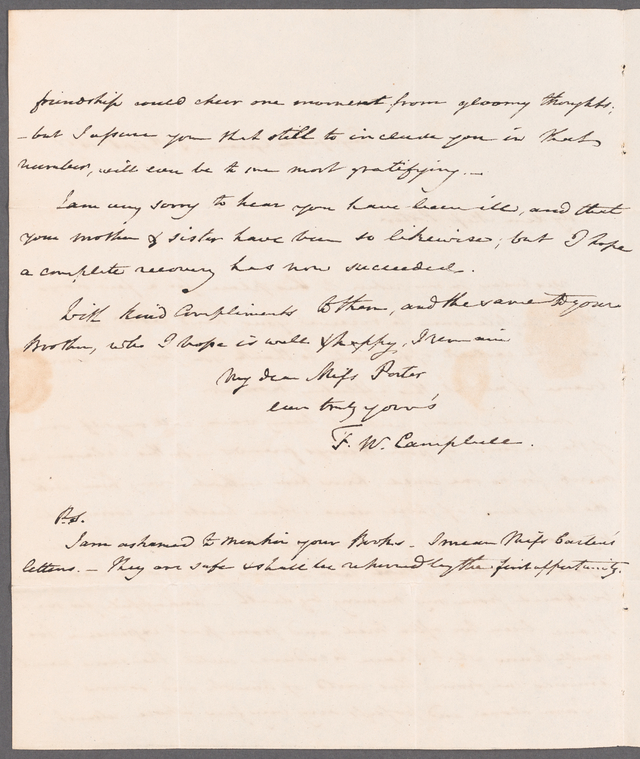 friendship could cheer one moment from gloomy thoughts;
- but I assure you that still to include you in that
number, will ever be to me most gratifying. -
I am very sorry to hear you have been ill, and that
your mother & sister have been so likewise; but I hope
a complete recovery has now succeeded.
With kind Compliments to them, and the same to your
Brother, who I hope is well & happy, I remain
My dear Miss Porter
ever truly your's
F. W. Campbell.
P.S.
I am ashamed to mention your Books - I mean Miss Carter's
letters. - They are safe & shall be returned by the first opportunity.